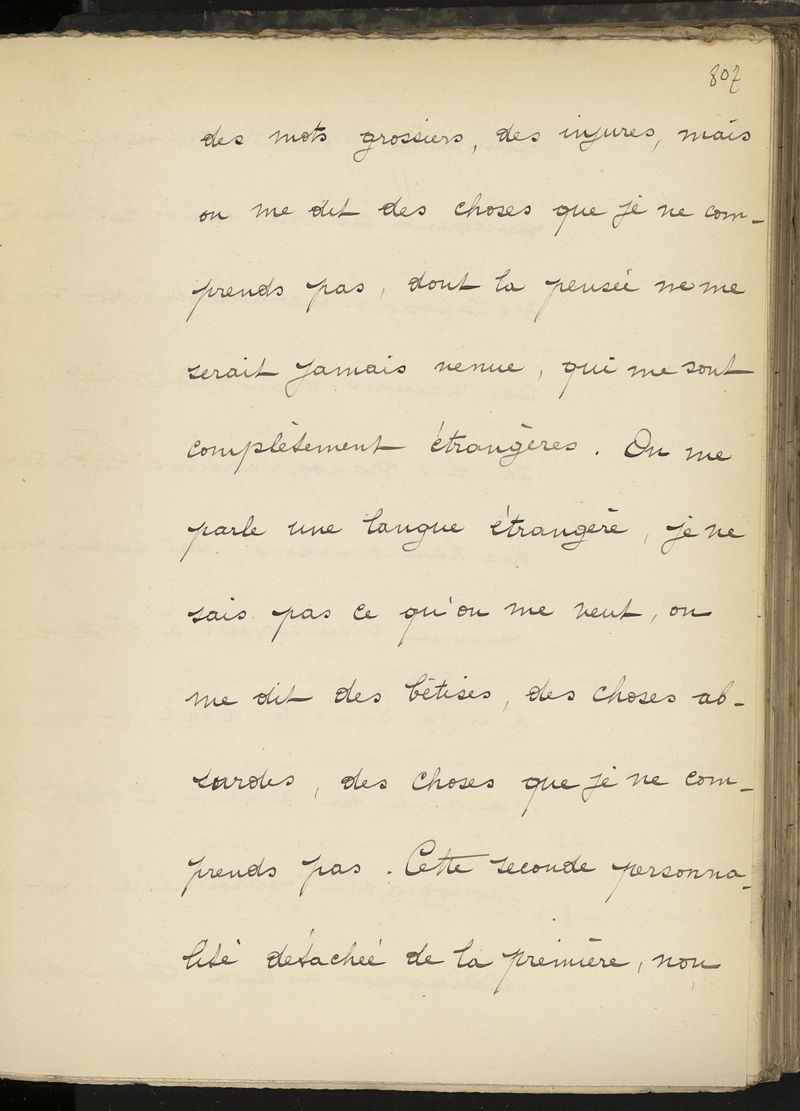 807
des mots grossiers, des injures, mais
on me dit des choses que je ne com-
prends pas, dont la pensée ne me
serait jamais venue, qui me sont
complètement étrangères. On me
parle une langue étrangère, je ne
sais pas ce qu'on me veut, on
me dit des bêtises, des choses ab-
surdes, des choses que je ne com-
prends pas. Cette seconde personna-
lité détachée de la première, non